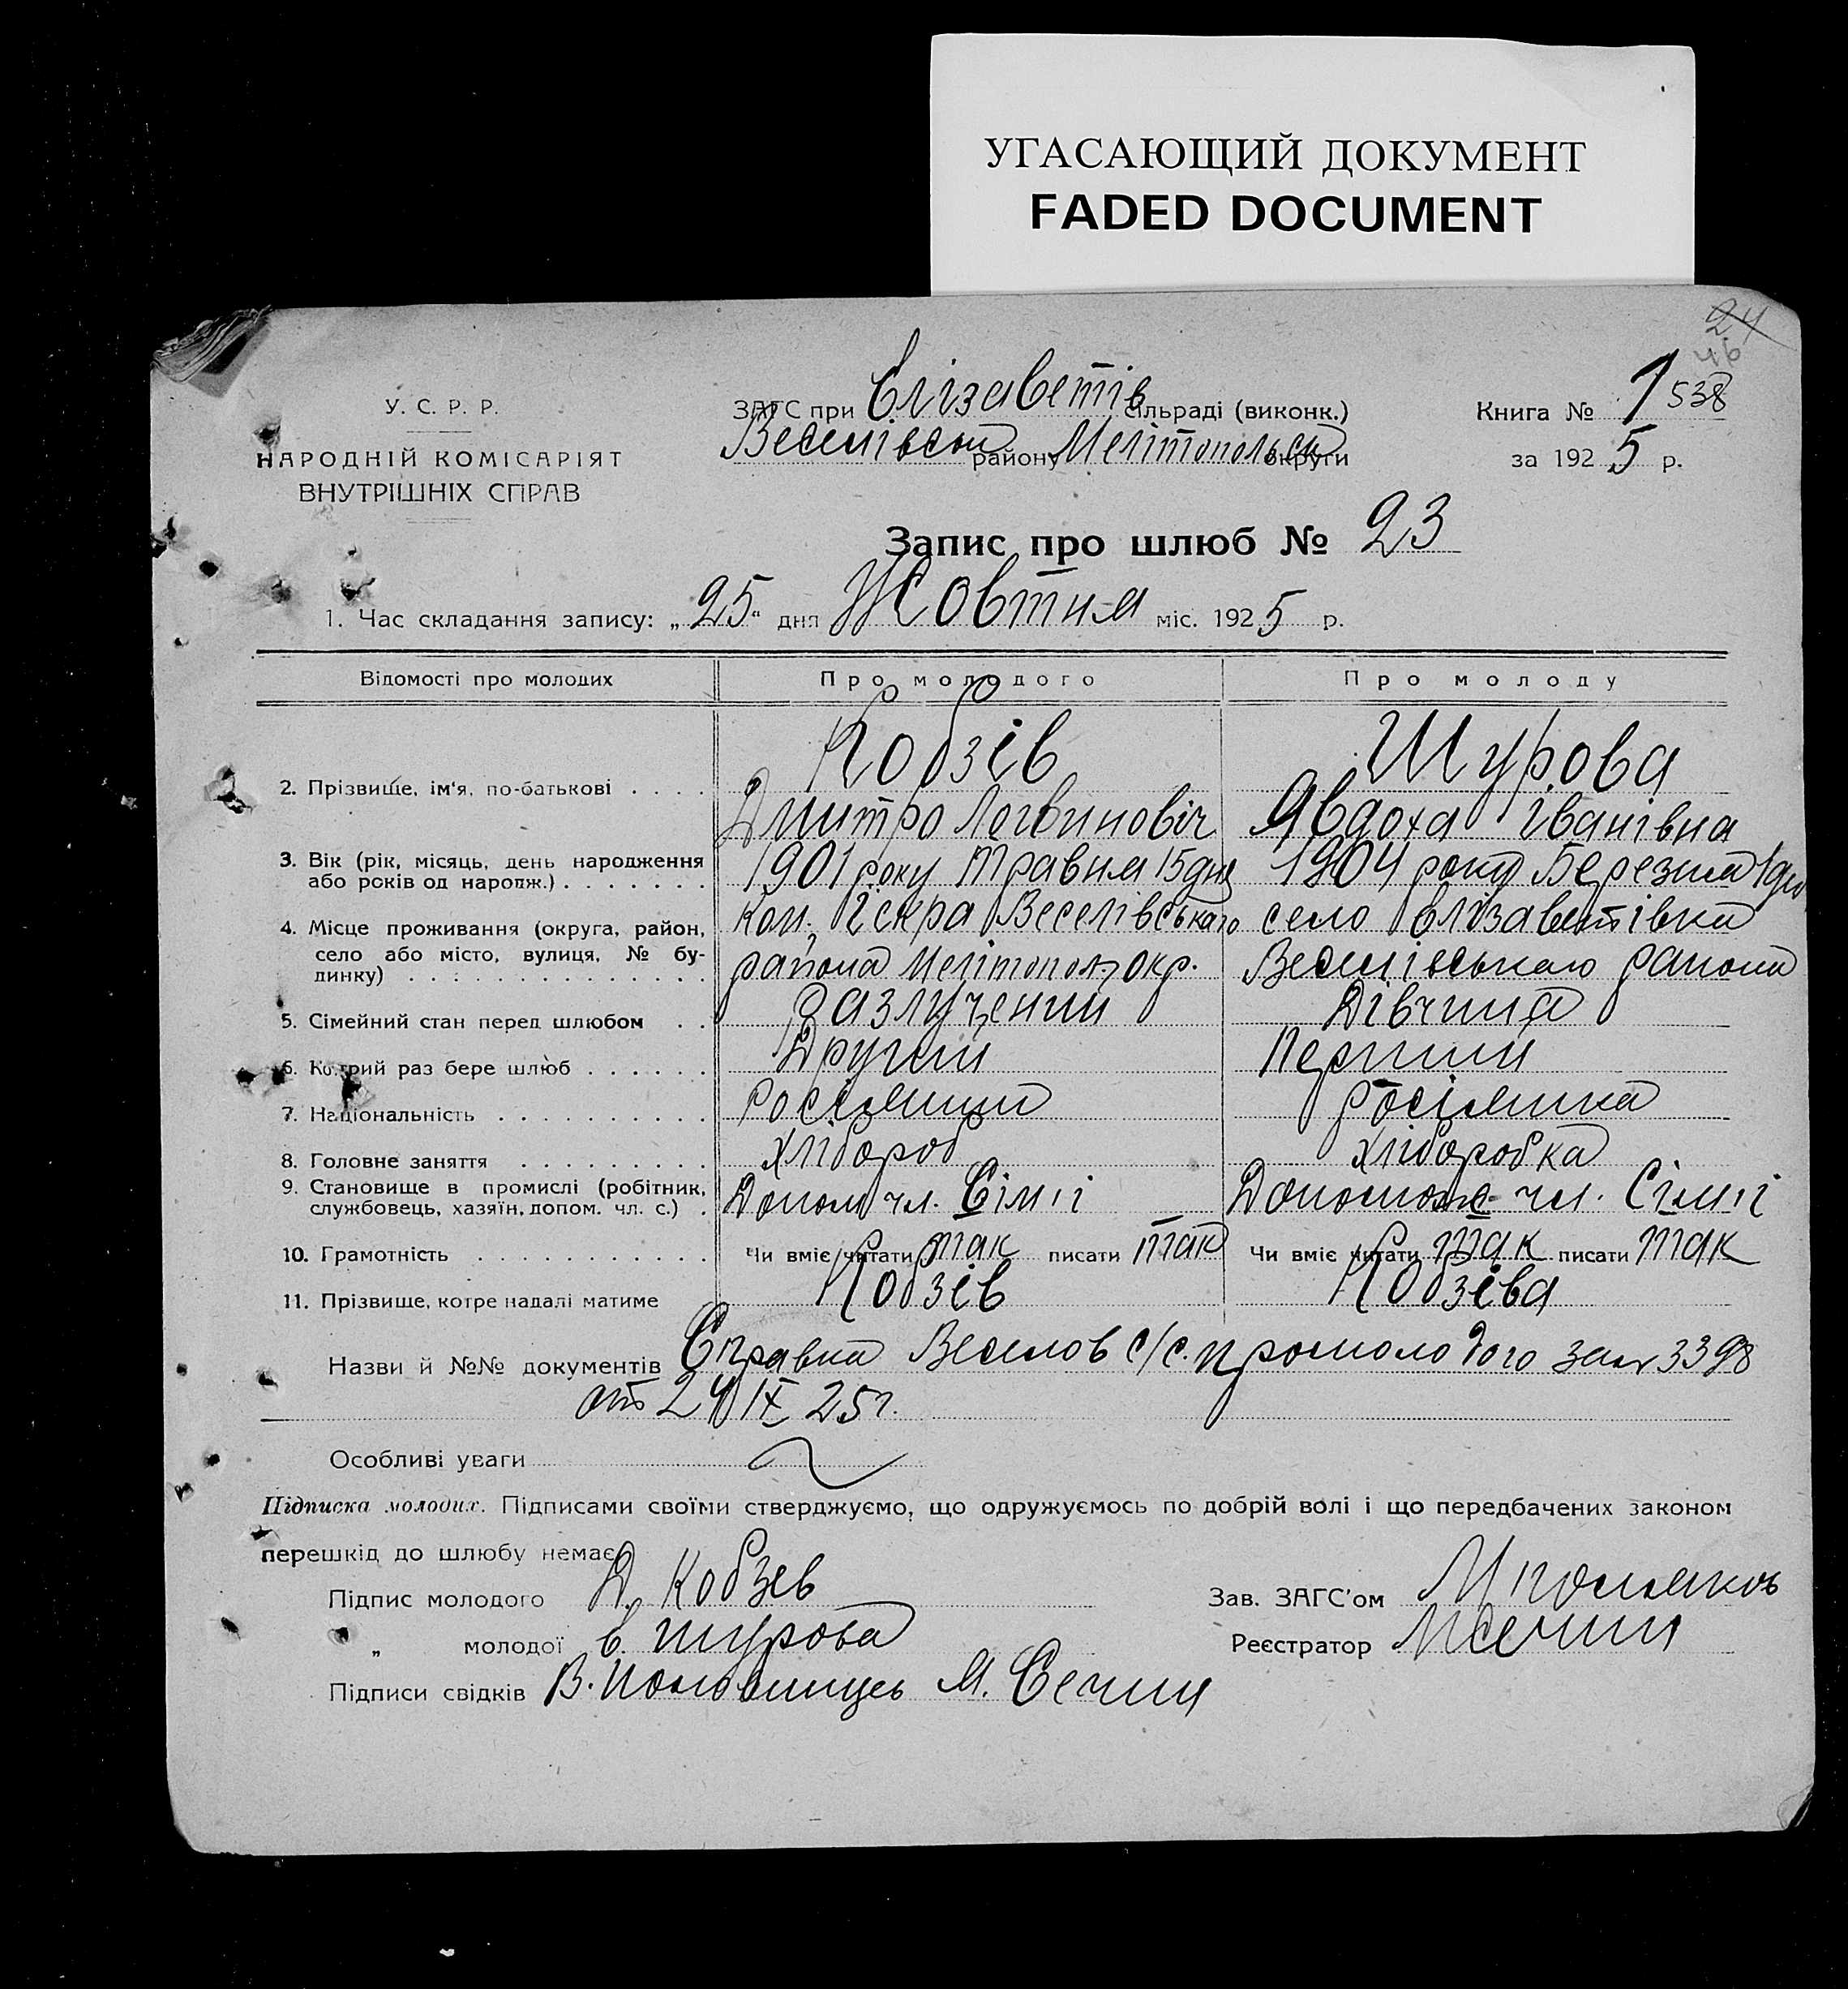 УГАСАЮЩИЙ ДОКУМЕНТ
FADED DOCUMENT
24
46
У. С. Р. Р.
НАРОДНІЙ КОМІСАРІЯТ
ВНУТРІШНІХ СПРАВ
ЗАГС при Єлізаветів сільраді (виконк.)
Веселівськ району Мелітопольск округи
Книга № 1 538
за 1925 р.
Запис про шлюб № 23
1. Час складання запису: „25" дня Жовтня міс. 1925 р.
Відомості про молодих Про молодого Про молоду
Кобзів Шурова
2. Прізвище, ім'я, по-батькові . . . .
Дмитро Логвиновіч Явдоха Іванівна
3. Вік (рік, місяць, день народження або років од народж.) . . . . . . . 1901 року травня 15 дня 1904 року Березня 1 дня
4. Місце проживання (округа, район, село або місто, вулиця, № будинку) . . . . . . . . . . . . . .
ком. Іскра Веселівського село Єлізаветівка
района Мелітопол. окр. Веселівського района
5. Сімейний стан перед шлюбом . . Разлучений Дівчина
6. Котрий раз бере шлюб . . . . . . Другий Перший
7. Національність . . . . . . . . . . Росіянин Росіянка
8. Головне заняття . . . . . . . . . Хлібороб Хліборобка
9. Становище в промислі (робітник, службовець, хазяїн, допом. чл. с.) . Допом чл. Сімїі чл. Сімїі
10. Грамотність . . . . . . . . . . . Чи вміє читати так писати так Чи вміє читати так писати так
11. Прізвище, котре надалі матиме Кобзів Кобзіва
Назви й №№ документів Справка Веселов с/с. про молодого за № 3398
от 24 IX 25 г.
Особливі уваги
Підписка молодих. Підписами своїми стверджуємо, що одружуємось по добрій волі і що передбачених законом
перешкід до шлюбу немає
Підпис молодого Д. Кобзев Зав. ЗАГС'ом
„ молодої Є. Шурова Реєстратор М Сечин
Підписи свідків В. М. Сечин